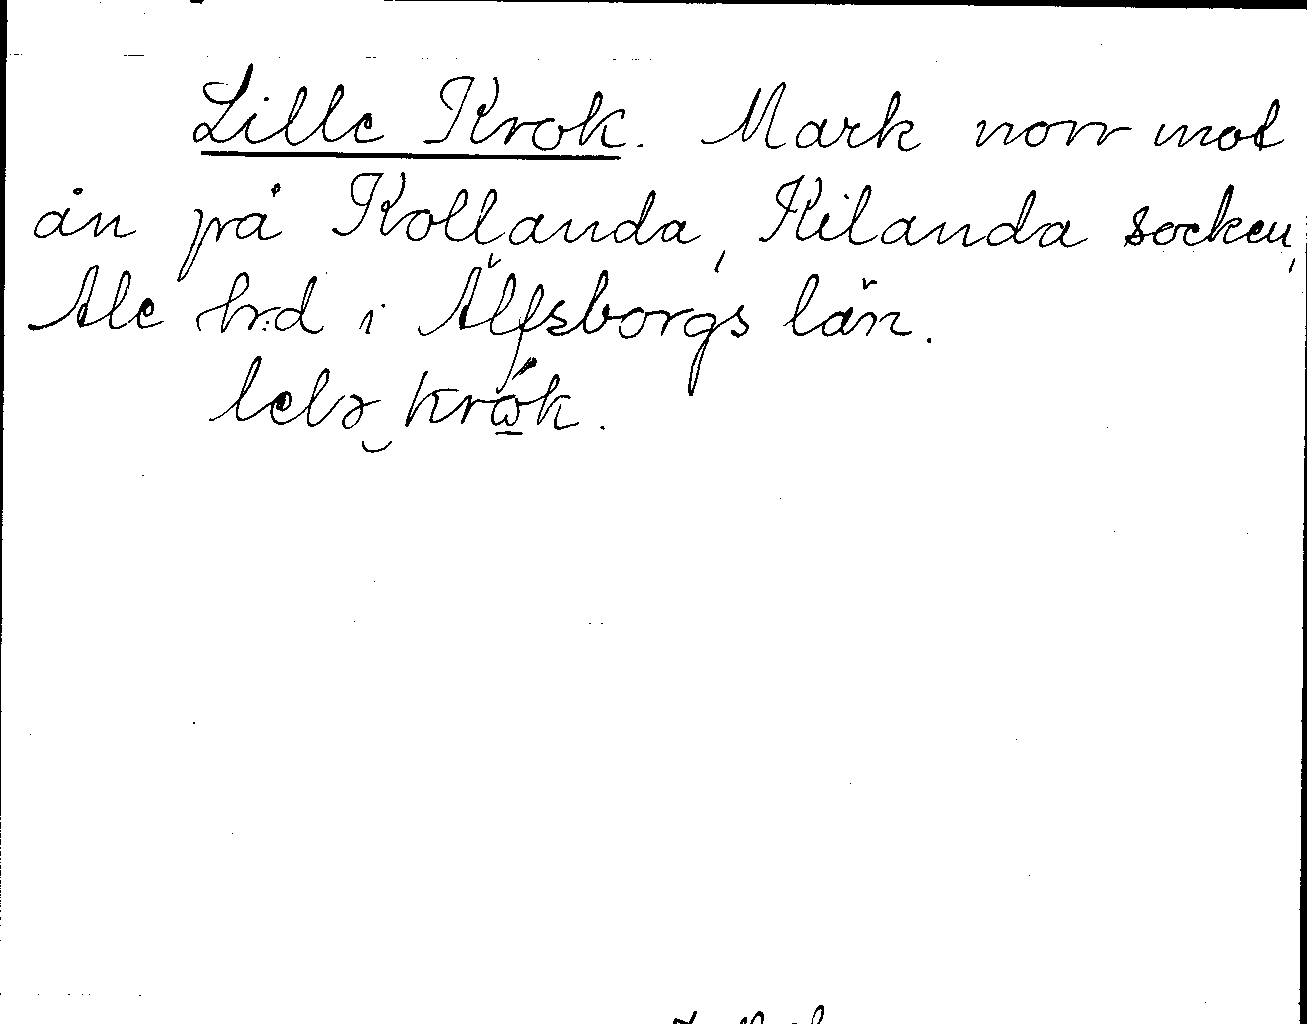 Lille Krok. Mark norr mot
ån på Kollanda, Kilanda socken,
Ale hrd i Älfsborgs län.
lelə krók.